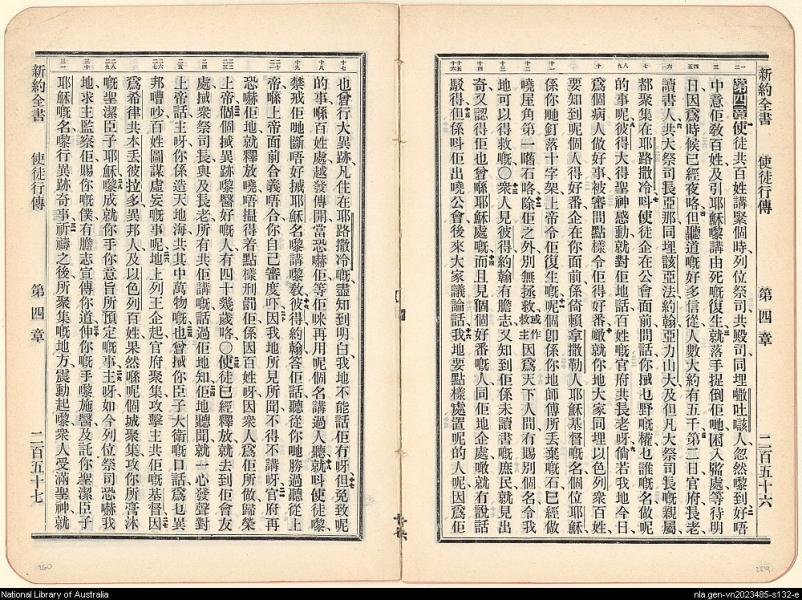 新約全書 使徒行傳 第四章 二百五十六
第四章使徒共百姓講緊個時列位祭司共殿司同埋嘅人忽然嚟到好唔
中意佢敎百姓及引耶穌嚟講由死嘅復生就落手捉倒佢哋困入監處等待明
日因爲時候已經夜咯但聽道嘅好多信從人數大約有五千第二日官府長老
讀書人共大祭司長亞那同埋該亞法約翰亞力山大及但凡大祭司長嘅親屬
都聚集在耶路撒冷呌使徒企在公會面前問話你攞乜野嘅權乜誰嘅名做呢
的事呢彼得大得聖神感動就對佢地話百姓嘅官府共長老呀倘若我地今日
爲個病人做好事被審問點樣令佢得好番噉就你地大家同埋以色列衆百姓
要知到呢個人得好番企在你面前係倚賴拿撒勒人耶穌基督嘅名個位耶穌
係你哋釘落十字架上帝令佢復生嘅呢個卽係你地師傅所丟棄嘅石已經做
曉屋角第一嚿石咯除佢之外別無拯救因爲天下人間有賜別個名令我
地可以得救嘅○衆人見彼得約翰有膽志又知到佢係未讀書嘅庶民就見出
奇又認得佢也曾喺耶穌處嘅而且見個個好番嘅人同佢地企處噉就有說話
駁得但係呌佢出曉公會後來大家議論話我地要點樣處置呢的人呢因爲佢
也曾行大異跡凡住在耶路撒冷嘅盡知到明白我地不能話佢有呀但免致呢
的事喺百姓處越發傳開當恐嚇佢等佢咪再用呢個名講過人聽就呌使徒嚟
禁戒佢哋斷唔好攞耶穌名嚟講嚟敎彼得約翰答佢話聽從你哋勝過聽從上
帝喺上帝面前合義唔合你自己審度吓因我地所見所聞不得不講呀官府再
恐嚇佢地就釋放曉唔搵得着點樣刑罰佢係因百姓呀因衆人爲佢所做歸榮
上帝個個攞異跡嚟醫好嘅人有四十幾歲咯○使徒已經釋放就去到佢會友
處攞衆祭司長與及長老所有共佢講嘅話過佢地知佢地聽聞就一心發聲對
上帝話主呀你係造天地海共其中萬物嘅也曾攞你臣子大衛嘅口話爲乜異
邦嘈吵百姓圖謀虛妄嘅事呢地上列王企起官府聚集攻擊主共佢嘅基督因
爲希律共本丟彼拉多異邦人及以色列百姓果然喺呢個城聚集攻你所膏沐
嘅聖潔臣子耶穌嚟成就你手你意旨所預定嘅事主呀如今列位祭司恐嚇我
地求主監察佢賜你嘅僕有膽志宣傳你道伸你嘅手嚟施醫及託你聖潔臣子
耶穌嘅名嚟行異跡奇事祈禱之後所聚集嘅地方震動起嚟衆人受滿聖神就
新約全書 使徒行傳 第四章 二百五十七
National Library of Australia
nla.gen-vn2023485-s132-e